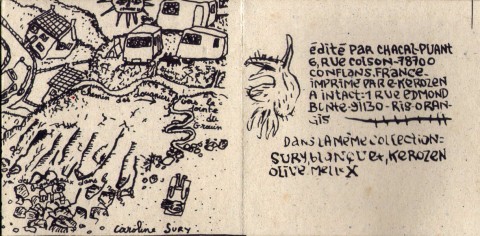 Chemin des Douaniers vers la
Pointe de
Caroline SURY.
édité PAR CHACAL-PUANT
6, RUE COLSON-78700
CONFLANS. FRANCE.
IMPRIMÉ PAR E-KEROZEN
A INSTANT-1 RUE EDMOND
BONTE-91130-RIS-ORAN-
GIS
DANS LA MÊME COLLECTION:
SURY, blanquet, KEROZEN
OLIVE. Melle X